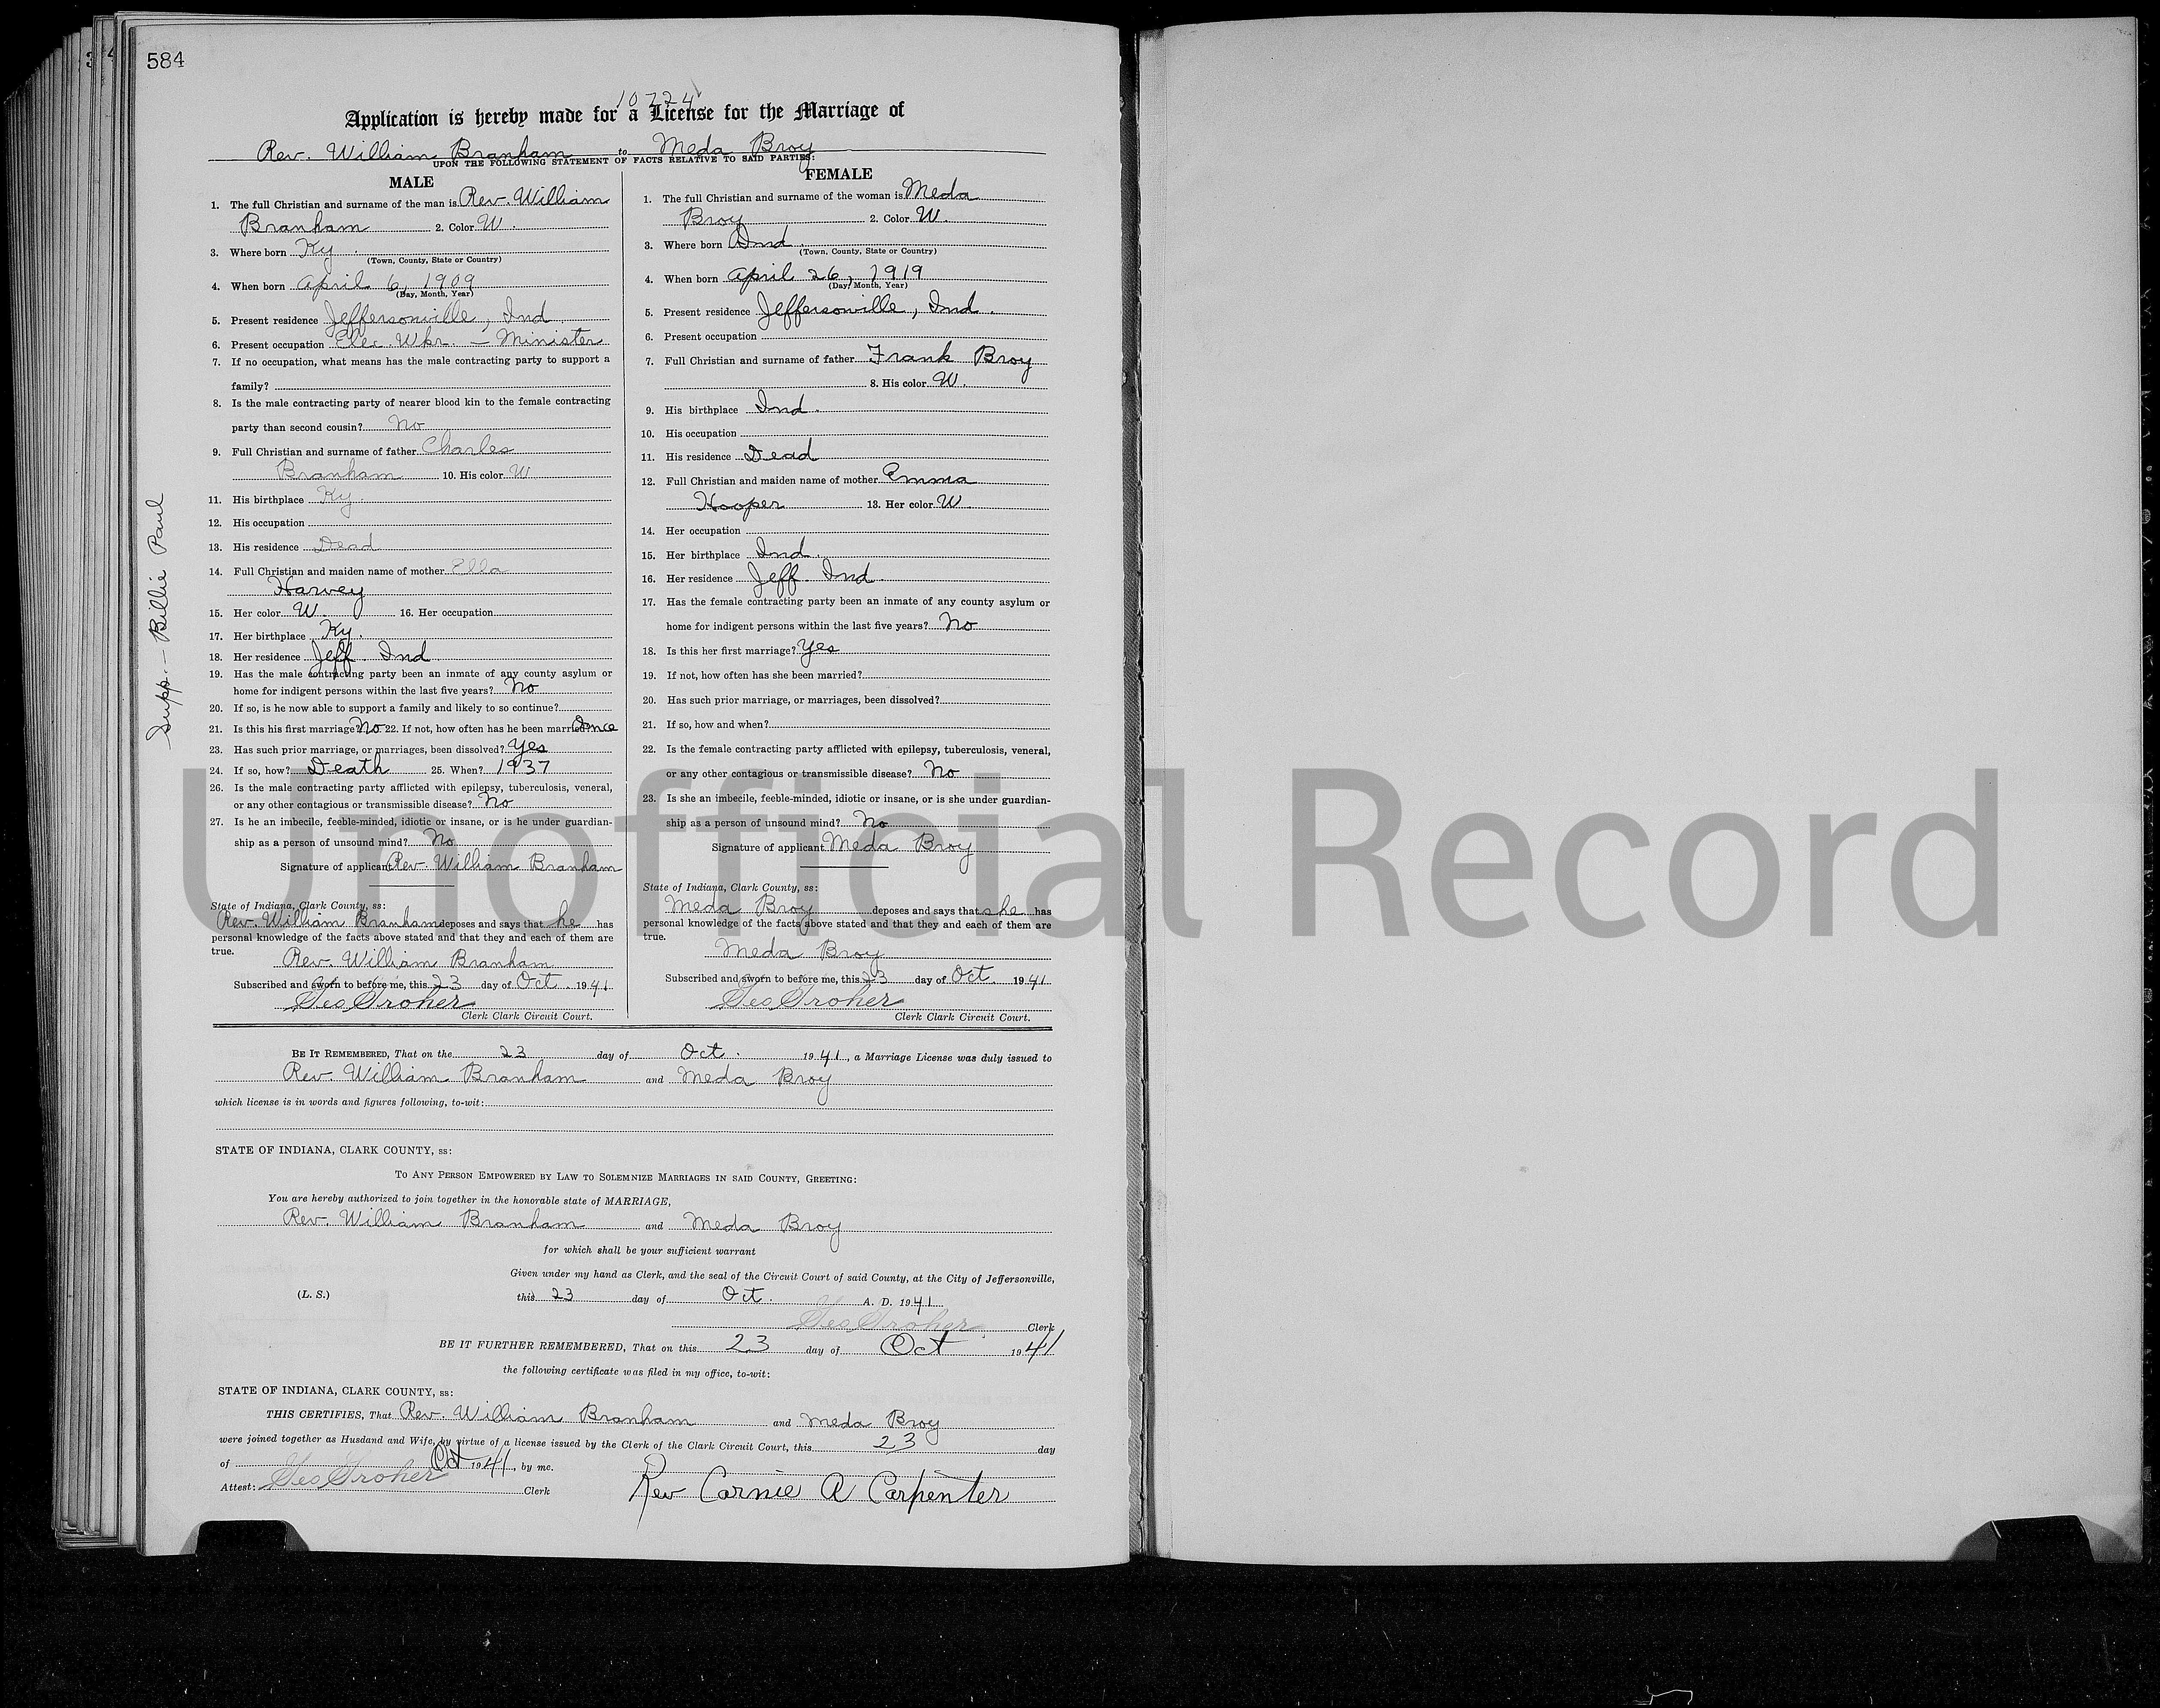 584
10724
Application is hereby made for a License for the Marriage of
Rev. William Branham to Meda Broy
UPON THE FOLLOWING STATEMENT OF FACTS RELATIVE TO SAID PARTIES:
MALE
1. The full Christian and surname of the man is Rev. William
Branham 2. Color W.
3. Where born Ky.
(Town, County, State or Country)
4. When born April 6, 1909
(Day, Month, Year)
5. Present residence Jeffersonville, Ind
6. Present occupation Elec. Wkr. — Minister
7. If no occupation, what means has the male contracting party to support a
family?
8. Is the male contracting party of nearer blood kin to the female contracting
party than second cousin? No
9. Full Christian and surname of father Charles
Branham 10. His color W
11. His birthplace Ky.
12. His occupation
13. His residence Dead
14. Full Christian and maiden name of mother Ella
Harvey
15. Her color W. 16. Her occupation
17. Her birthplace Ky.
18. Her residence Jeff. Ind
19. Has the male contracting party been an inmate of any county asylum or
home for indigent persons within the last five years? No
20. If so, is he now able to support a family and likely to so continue?
21. Is this his first marriage? No 22. If not, how often has he been married? Once
23. Has such prior marriage, or marriages, been dissolved? Yes
24. If so, how? Death 25. When? 1937
26. Is the male contracting party afflicted with epilepsy, tuberculosis, veneral,
or any other contagious or transmissible disease? No
27. Is he an imbecile, feeble-minded, idiotic or insane, or is he under guardian-
ship as a person of unsound mind? No
Signature of applicant Rev. William Branham
State of Indiana, Clark County, ss:
Rev. William Branham deposes and says that he has
personal knowledge of the facts above stated and that they and each of them are
true.
Rev. William Branham
Subscribed and sworn to before me, this 23 day of Oct. 1941
Geo Troher
Clerk Clark Circuit Court.
Supp. — Billie Paul
FEMALE
1. The full Christian and surname of the woman is Meda
Broy 2. Color W.
3. Where born Ind.
(Town, County, State or Country)
4. When born April 26, 1919
(Day, Month, Year)
5. Present residence Jeffersonville, Ind.
6. Present occupation
7. Full Christian and surname of father Frank Broy
8. His color W.
9. His birthplace Ind.
10. His occupation
11. His residence Dead
12. Full Christian and maiden name of mother Emma
Hooper 13. Her color W.
14. Her occupation
15. Her birthplace Ind.
16. Her residence Jeff. Ind.
17. Has the female contracting party been an inmate of any county asylum or
home for indigent persons within the last five years? No
18. Is this her first marriage? Yes
19. If not, how often has she been married?
20. Has such prior marriage, or marriages, been dissolved?
21. If so, how and when?
22. Is the female contracting party afflicted with epilepsy, tuberculosis, veneral,
or any other contagious or transmissible disease? No
23. Is she an imbecile, feeble-minded, idiotic or insane, or is she under guardian-
ship as a person of unsound mind? No
Signature of applicant Meda Broy
State of Indiana, Clark County, ss:
Meda Broy deposes and says that she has
personal knowledge of the facts above stated and that they and each of them are
true.
Meda Broy
Subscribed and sworn to before me, this 23 day of Oct. 1941
Geo Troher
Clerk Clark Circuit Court.
BE IT REMEMBERED, That on the 23 day of Oct. 1941, a Marriage License was duly issued to
Rev. William Branham and Meda Broy
which license is in words and figures following, to-wit:
STATE OF INDIANA, CLARK COUNTY, ss:
TO ANY PERSON EMPOWERED BY LAW TO SOLEMNIZE MARRIAGES IN SAID COUNTY, GREETING:
You are hereby authorized to join together in the honorable state of MARRIAGE,
Rev. William Branham and Meda Broy
for which shall be your sufficient warrant
Given under my hand as Clerk, and the seal of the Circuit Court of said County, at the City of Jeffersonville,
(L. S.) this 23 day of Oct. A. D. 1941
Geo Troher Clerk
BE IT FURTHER REMEMBERED, That on this 23 day of Oct 1941
the following certificate was filed in my office, to-wit:
STATE OF INDIANA, CLARK COUNTY, ss:
THIS CERTIFIES, That Rev. William Branham and Meda Broy
were joined together as Husdand and Wife, by virtue of a license issued by the Clerk of the Clark Circuit Court, this 23 day
of Oct 1941, by me.
Attest: Geo Troher Clerk Rev Carnie A Carpenter
Unofficial Record